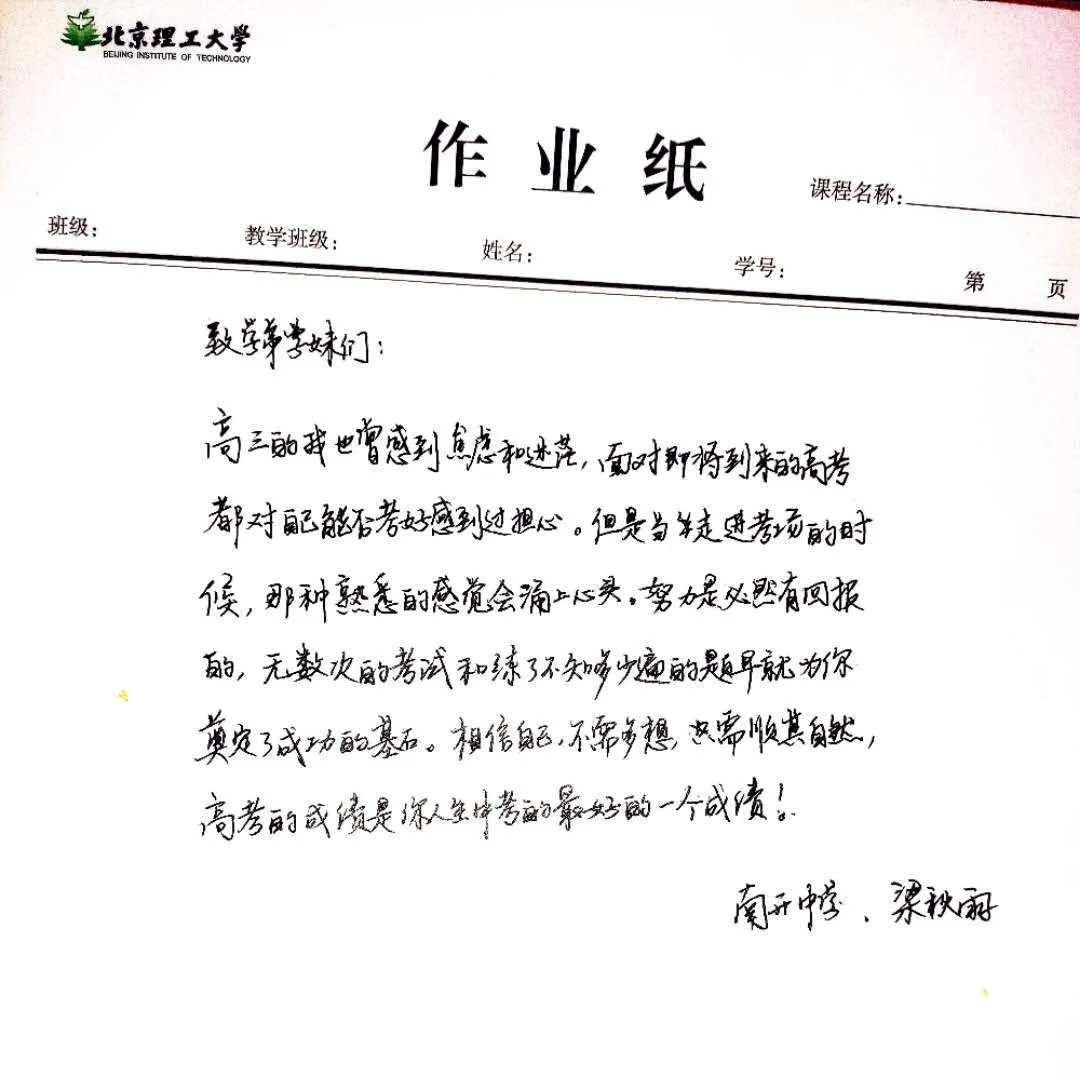 北京理工大学
BEIJING INSTITUTE OF TECHNOLOGY
作业纸
课程名称:
班级: 教学班级: 姓名: 学号: 第 页
致学弟学妹们:
高三的我也曾感到焦虑和迷茫,面对即将到来的高考
都对自己能否考好感到过担心。但是当走进考场的时
候,那种熟悉的感觉会涌上心头。努力是必然有回报
的,无数次的考试和练了不知多少遍的题早就为你
奠定了成功的基石。相信自己,不需多想,只需顺其自然,
高考的成绩是你人生中考的最好的一个成绩!
南开中学、梁秋雨